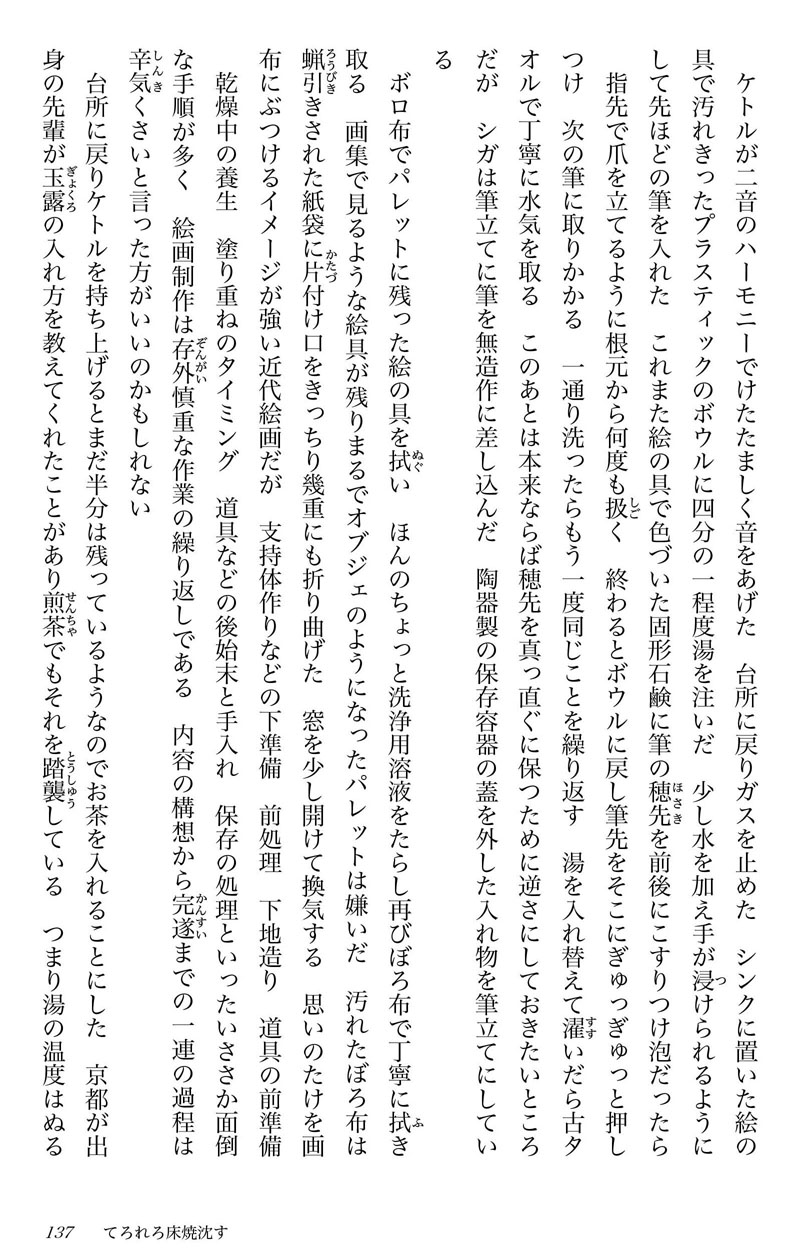 ケトルが二音のハーモニーでけたたましく音をあげた　台所に戻りガスを止めた　シンクに置いた絵の
具で汚れきったプラスティックのボウルに四分の一程度湯を注いだ　少し水を加え手が浸けられるように
して先ほどの筆を入れた　これまた絵の具で色づいた固形石鹸に筆の穂先を前後にこすりつけ泡だったら
指先で爪を立てるように根元から何度も扱く　終わるとボウルに戻し筆先をそこにぎゅっぎゅっと押し
つけ　次の筆に取りかかる　一通り洗ったらもう一度同じことを繰り返す　湯を入れ替えて濯いだら古タ
オルで丁寧に水気を取る　このあとは本来ならば穂先を真っ直ぐに保つために逆さにしておきたいところ
だが　シガは筆立てに筆を無造作に差し込んだ　陶器製の保存容器の蓋を外した入れ物を筆立てにしてい
る
ボロ布でパレットに残った絵の具を拭い　ほんのちょっと洗浄用溶液をたらし再びぼろ布で丁寧に拭き
取る　画集で見るような絵具が残りまるでオブジェのようになったパレットは嫌いだ　汚れたぼろ布は
蝋引きされた紙袋に片付け口をきっちり幾重にも折り曲げた　窓を少し開けて換気する　思いのたけを画
布にぶつけるイメージが強い近代絵画だが　支持体作りなどの下準備　前処理　下地造り　道具の前準備
乾燥中の養生　塗り重ねのタイミング　道具などの後始末と手入れ　保存の処理といったいささか面倒
な手順が多く　絵画制作は存外慎重な作業の繰り返しである　内容の構想から完遂までの一連の過程は
辛気くさいと言った方がいいのかもしれない
台所に戻りケトルを持ち上げるとまだ半分は残っているようなのでお茶を入れることにした　京都が出
身の先輩が玉露の入れ方を教えてくれたことがあり煎茶でもそれを踏襲している　つまり湯の温度はぬる
137　てろれろ床焼沈す